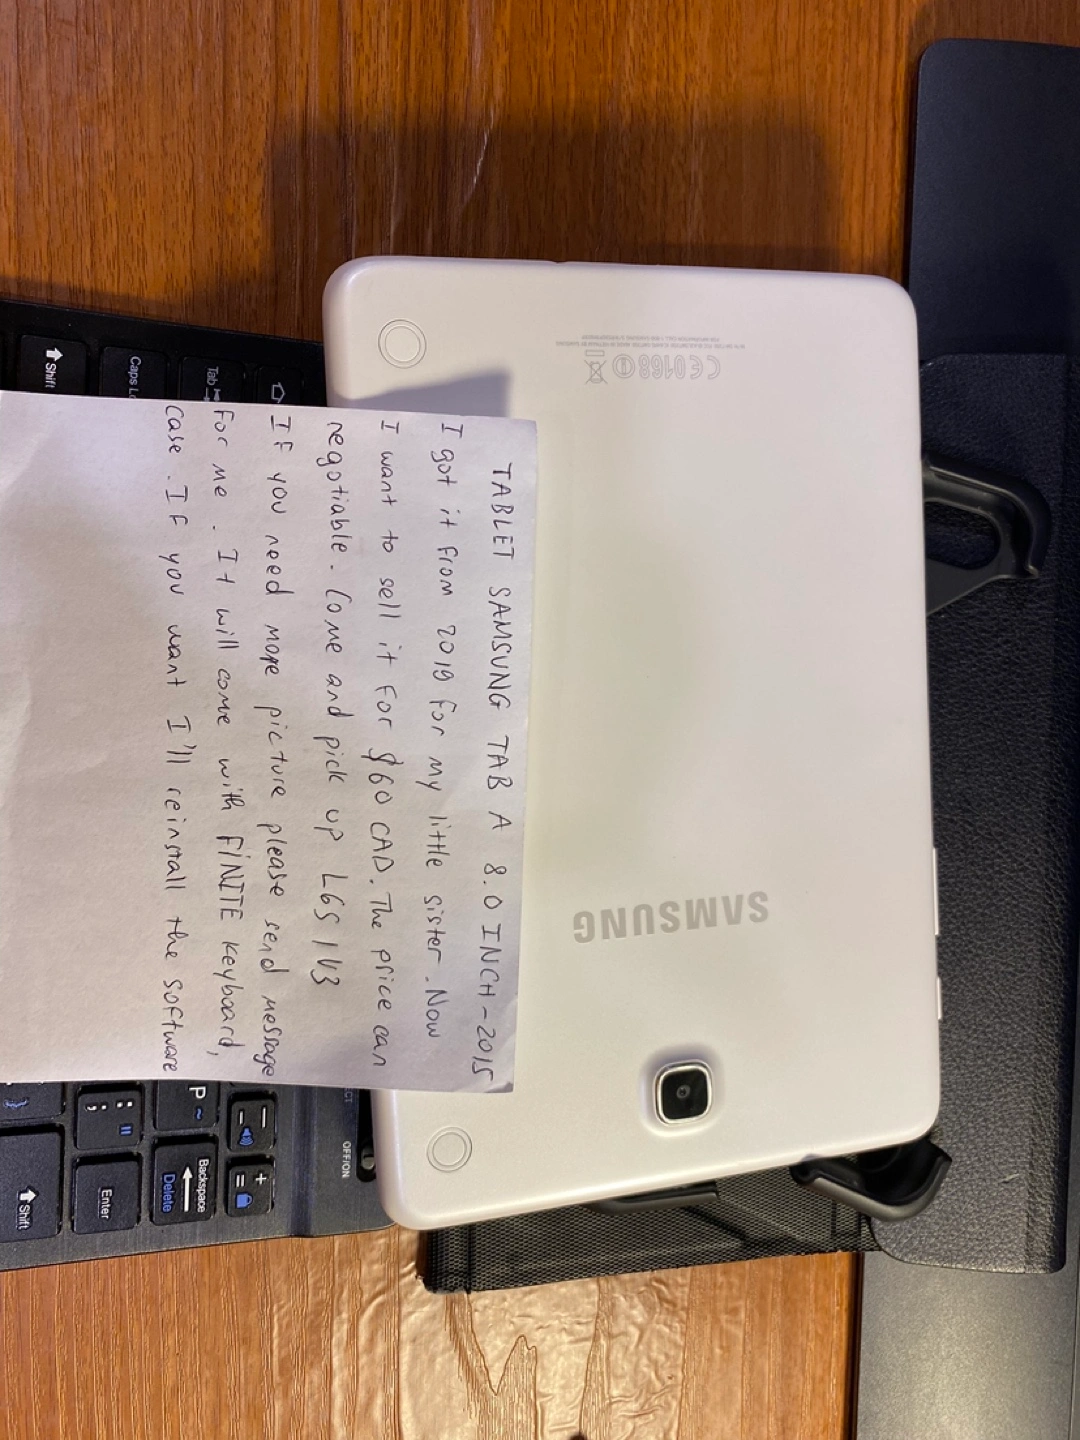 TABLET SAMSUNG TAB A 8.0 INCH - 2015
I got it from 2019 for my little sister. Now
I want to sell it for $60 CAD. The price can
negotiable. Come and pick up L6S 1V3
If you need more picture please send message
for me. It will come with FINITE keyboard,
case. If you want I'll reinstall the software
SAMSUNG
CE0168
Shift
Caps
Tab
P
OFF/ON
Backspace
Delete
Enter
Shift